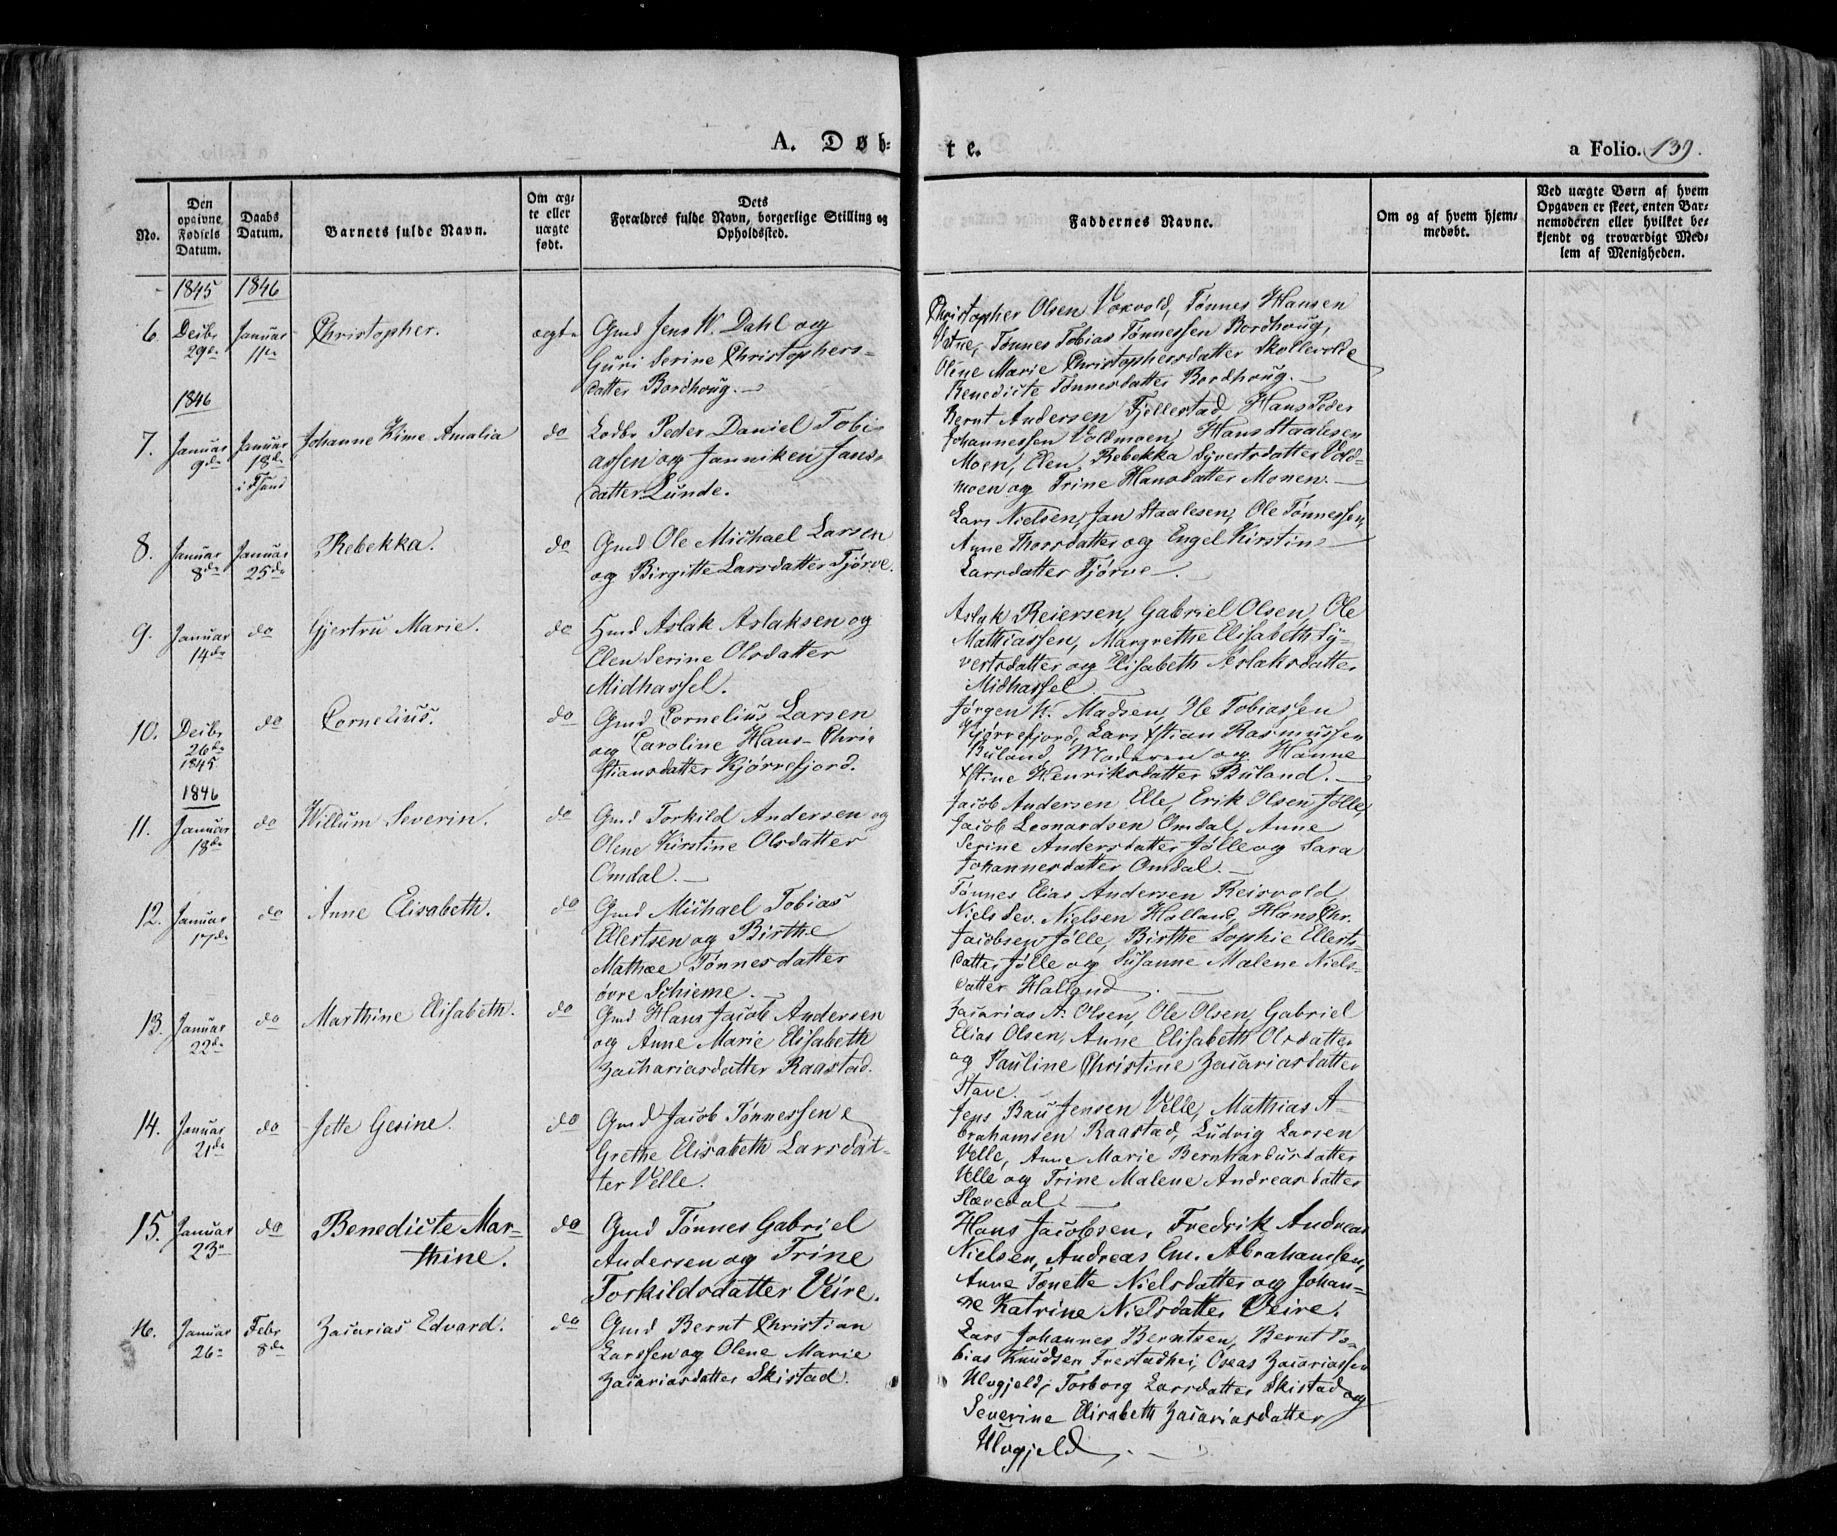 A. Døb-
te.
a Folio. 139.
No.
Den opgivne Fødsels Datum.
Daabs Datum.
Barnets fulde Navn.
Om ægte eller uægte født.
Dets Forældres fulde Navn, borgerlige Stilling og Opholdssted.
Faddernes Navne.
Om og af hvem hjemmedøbt.
Ved uægte Børn af hvem Opgaven er skeet, enten Barnemoderen eller hvilket bekjendt og troværdigt Medlem af Menigheden.
1845 1846
6. Decbr 29de Januar 11te Christopher. ægte
Gmd Jens W. Dahl og
Guri Serine Christophers-
datter Bordhoug.
Christopher Olsen Voxvold, Tønnes Hansen
Østue, Tønnes Tobias Tønnessen Bordhoug,
Oline Marie Christophersdatter Skollevolde
Benedicte Tønnesdatter Bordhoug.
1846
7. Januar 9de Januar 18de i Thund Johanne Kime Amalia do
Lodbr Peder Daniel Tobi-
assen og Janniken Jans-
datter Lunde.
Bernt Andersen Fjellestad, Hans Peder
Johannessen Voldmoen, Hans Staalesen
Moen, Elen Rebekka Syvertsdatter Vold-
moen og Trine Hansdatter Monen.
8. Januar 8de Januar 25de Rebekka. do
Gmd Ole Michael Larsen
og Birgitte Larsdatter Tjørve.
Lars Nielsen, Jan Staalesen, Ole Tønnessen,
Anne Thorsdatter og Engel Kirstine
Larsdatter Tjørve.
9. Januar 14de do Gjertru Marie. do
Hmd Aslak Aslaksen og
Elen Serine Olsdatter
Midhassel.
Aslak Reiersen, Gabriel Olsen, Ole
Mathiassen, Margrethe Elisabeth Sy-
vertsdatter og Elisabeth Aslaksdatter
Midhassel
10. Decbr 26de 1845 do Cornelius. do
Gmd Cornelius Larsen
og Caroline Hans-Chri-
stiansdatter Kjørrefjord.
Jørgen W. Madsen, Ole Tobiassen
Kjørrefjord, Lars Xstian Rasmussen
Buland, Moderen og Hanne
Xstine Henriksdatter Buland.
1846
11. Januar 18de do Willum Severin. do
Gmd Torkild Andersen og
Olene Kirstine Olsdatter
Omdal.
Jacob Andersen Elle, Erik Olsen Jølle,
Jacob Leonardsen Omdal, Anne
Serine Andersdatter Jølle og Sara
Johannesdatter Omdal.
12. Januar 17de do Anne Elisabeth. do
Gmd Michael Tobias
Elertsen og Birthe
Mathæ Tønnesdatter
øvre Schieme.
Tønnes Elias Andersen Reisvold,
Niels Sev. Nielsen Halland, Hans Chr.
Jacobsen Jølle, Birthe Sophie Ellerts-
datter Jølle og Susanne Malene Niels-
datter Halland
13. Januar 22de do Marthine Elisabeth. do
Gmd Hans Jacob Andersen
og Anne Marie Elisabeth
Zachariasdatter Raastad.
Zacarias A. Olsen, Ole Olsen, Gabriel
Elias Olsen, Anne Elisabeth Olsdatter
og Pauline Christine Zacariasdatter
Stave.
14. Januar 21de do Jette Gesine. do
Gmd Jacob Tønnessen &
Grethe Elisabeth Larsdat-
ter Velle.
Jens Bau Jensen Velle, Mathias A-
brahamsen Raastad, Ludvig Larsen
Velle, Anne Marie Bernhardusdatter
Velle og Trine Malene Andreasdatter
Slævedal
15. Januar 23de do Benedicte Mar-
thine. do
Gmd Tønnes Gabriel
Andersen og Trine
Torkildsdatter Veire.
Hans Jacobsen, Fredrik Andreas
Nielsen, Andreas Em. Abrahamsen,
Anne Tonette Nielsdatter og Johan-
ne Katrine Nielsdatter Veire.
16. Januar 26de Febr 8de Zacarias Edvard. do
Gmd Bernt Christian
Larssen og Olene Marie
Zacariasdatter Skistad.
Lars Johannes Berntsen, Bernt To-
bias Knudsen Frestadhei, Oseas Zacariassen
Ulvgjeld, Torborg Larsdatter Skistad og
Severine Elisabeth Zacariasdatter
Ulvgjeld.